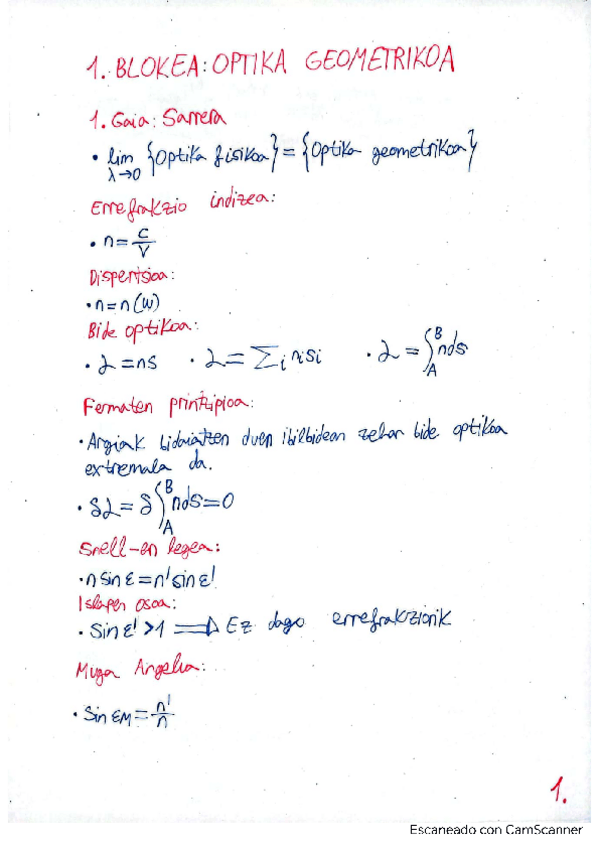 1. BLOKEA: OPTIKA GEOMETRIKOA
1. Gaia: Sarrera
• lim λ→0 {Optika fisikoa} = {Optika geometrikoa}
Errefrakzio indizea:
• n = c/v
Dispertsioa:
• n = n(ω)
Bide optikoa:
• L = ns • L = Σi nisi • L = ∫_A^B nds
Fermaten printzipioa:
• Argiak bidaiatzen duen ibilbidean zehar bide optikoa
extremala da.
• δL = δ∫_A^B nds = 0
Snell-en legea:
• n sin ε = n' sin ε'
Islapen osoa:
• Sin ε' > 1 ⟹ Ez dago errefrakziorik
Muga Angelua:
• Sin εM = n'/n
1.
Escaneado con CamScanner